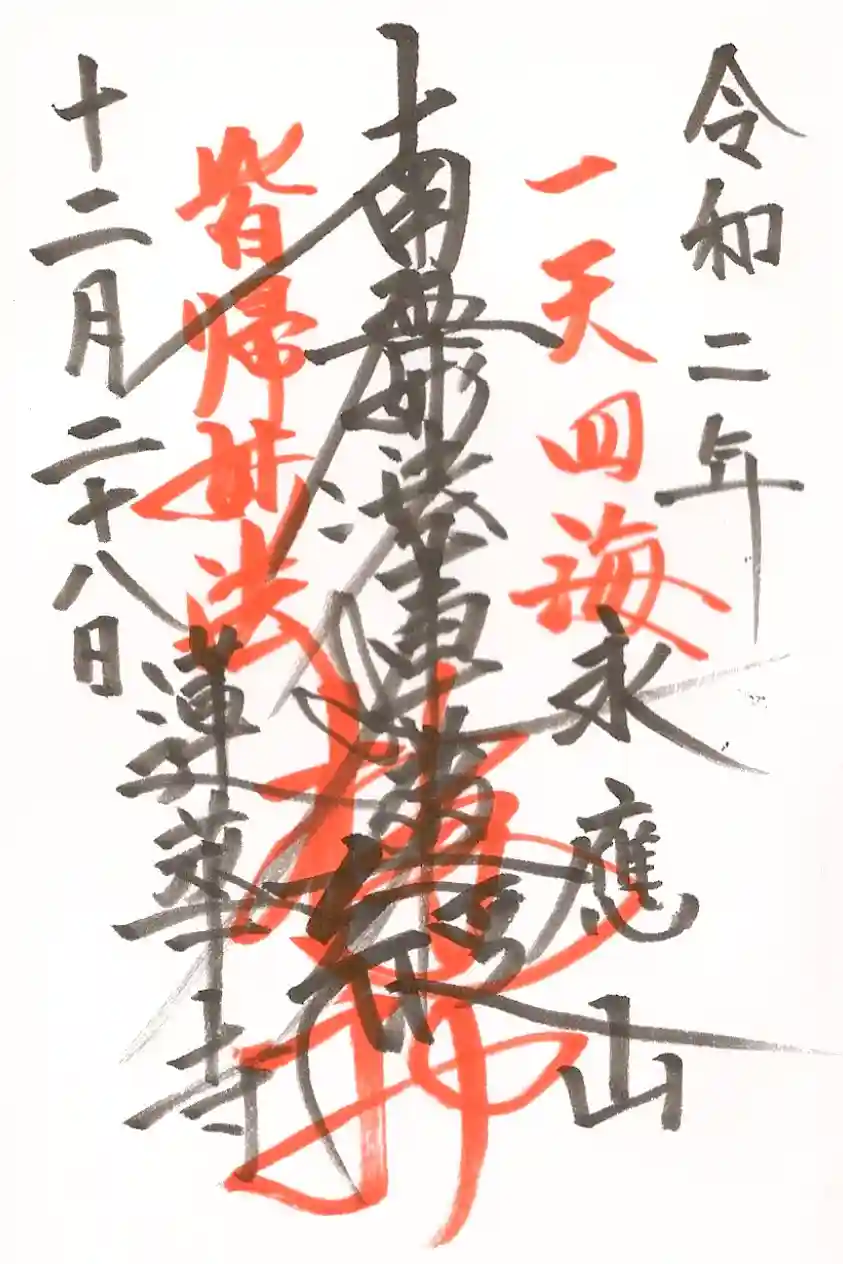 令和二年
一天四海
永應山
南無妙法蓮華經
皆帰妙法
蓮華寺
十二月二十八日